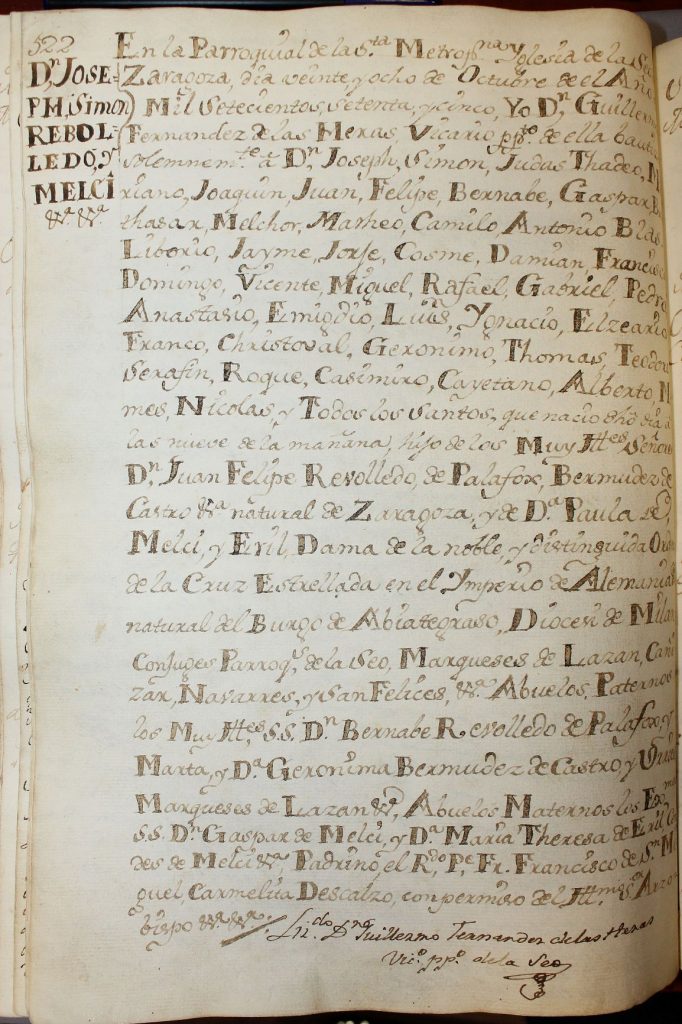 522
Dn. JOSE-
PH, Simon
REBOL-
LEDO, y
MELCI
&a. &a.
En la Parroquial de la Sta. Metropna. Yglesia de la Seo
Zaragoza, dia veinte, y ocho de Octubre de el Año
Mil Setecientos, setenta, y cinco, Yo Dn. Guillermo
Fernandez de las Heras, Vicario ppto. de ella bauti
solemnemte. a Dn. Joseph, Simon, Judas Thadeo, M
riano, Joaquin, Juan, Felipe, Bernabe, Gaspar, B
thasar, Melchor, Matheo, Camilo, Antonio, Blas,
Liborio, Jayme, Jorje, Cosme, Damian, Francisco
Domingo, Vicente, Miguel, Rafael, Gabriel, Pedro
Anastasio, Emigdio, Luis, Ygnacio, Elzeario
Franco, Christoval, Geronimo, Thomas, Teodoro
Serafin, Roque, Casimiro, Cayetano, Alberto, N
mes, Nicolas, y Todos los Santos, que nacio dho dia a
las nueve de la mañana, hijo de los Muy Iltes. Señores
Dn. Juan Felipe Revolledo, de Palafox, Bermudez de
Castro &a. natural de Zaragoza, y de Da. Paula de
Melci, y Eril, Dama de la noble, y distinguida Orden
de la Cruz Estrellada en el Ymperio de Alemania
natural del Burgo de Abiategraso, Diocesi de Milan
Conjuges Parroqs. de la Seo, Marqueses de Lazan, Cañi
zar, Navarres, y San Felices, &a. Abuelos Paternos
los Muy Iltes. S.S. Dn. Bernabe Revolledo de Palafox, y
Marta, y Da. Geronima Bermudez de Castro, y
Marqueses de Lazan &a., Abuelos Maternos los Exmos
S.S. Dn. Gaspar de Melci, y Da. Maria Theresa de Eril Con
des de Melci &a. Padrino, el Rdo. Pe. Fr. Francisco de Sn. Mi
guel, Carmelita Descalzo, con permiso del Iltmo. Sr. Arzo
bispo &a. &a.
Licdo. Dn. Guillermo Fernandez de las Heras
Vico. ppo. de la Seo